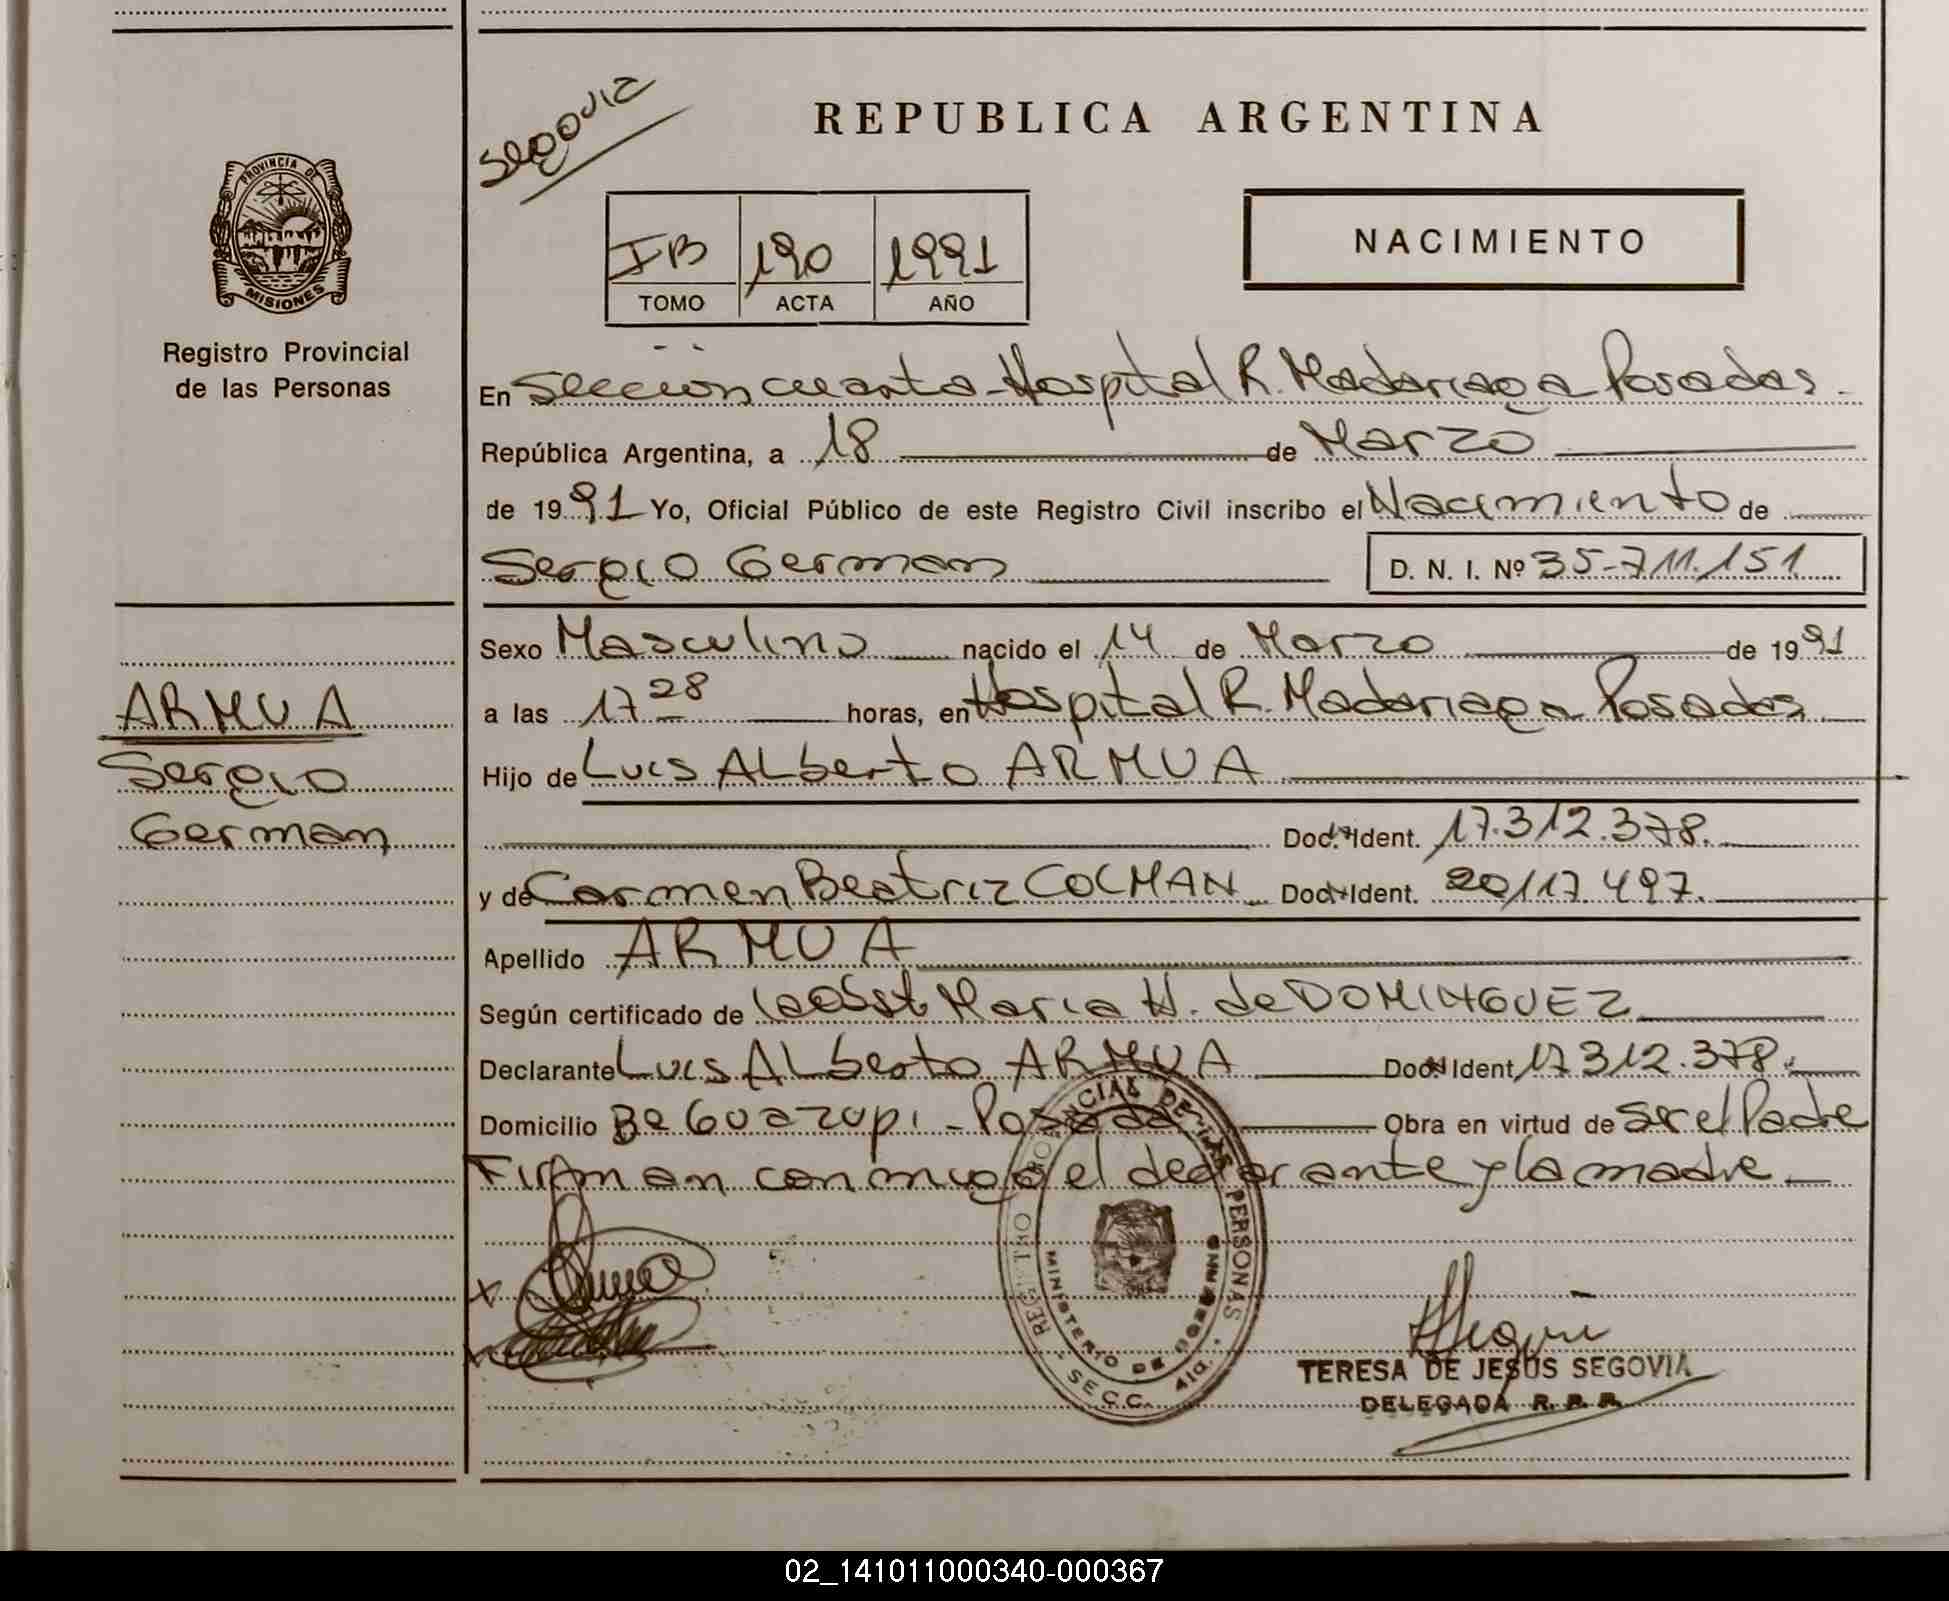 Segovia
REPUBLICA ARGENTINA
PROVINCIA DE
MISIONES
Registro Provincial
de las Personas
IB 190 1991
TOMO ACTA AÑO
NACIMIENTO
En Sección cuarta - Hospital R. Madariaga Posadas -
República Argentina, a 18 de Marzo
de 1991 Yo, Oficial Público de este Registro Civil inscribo el Nacimiento de
Sergio German D. N. I. Nº 35-711.151
Sexo Masculino nacido el 14 de Marzo de 1991
a las 17 28 horas, en Hospital R. Madariaga Posadas
Hijo de Luis ALberto ARMUA
Doc. Ident. 17.312.378.
y de Carmen Beatriz COLMAN Doc. Ident. 20.117.497.
Apellido ARMUA
Según certificado de la obst Maria H. de DOMINGUEZ
Declarante Luis ALberto ARMUA Doc. Ident 17.312.378.
Domicilio Bº Guazupi - Posadas Obra en virtud de ser el Padre
Firman conmigo el declarante y la madre -
ARMUA
Sergio
German
REGISTRO PROVINCIAL DE LAS PERSONAS
MINISTERIO DE GOBIERNO
SECC. 4ta.
TERESA DE JESUS SEGOVIA
DELEGADA R. P. P.
02_141011000340-000367